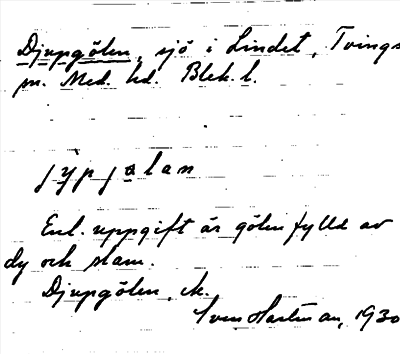 Djupgölen, sjö i Lindet, Tvings
sn. Med. hd. Blek. l.
jypjølan
Enl. uppgift är gölen fylld av
dy och slam.
Djupgölen, ek.
Sven Hartman, 1930